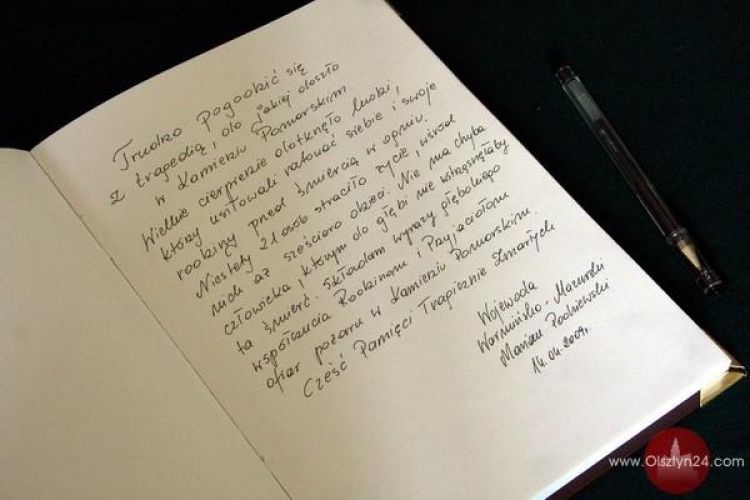 Trudno pogodzić się
z tragedią, do jakiej doszło
w Kamieniu Pomorskim
Wielkie cierpienie dotknęło ludzi,
którzy usiłowali ratować siebie i swoje
rodziny przed śmiercią w ogniu.
Niestety 21 osób straciło życie, wśród
nich aż sześcioro dzieci. Nie ma chyba
człowieka, którym do głębi nie wstrząsnęłaby
ta śmierć. Składam wyrazy głębokiego
współczucia Rodzinom i Przyjaciołom
ofiar pożaru w Kamieniu Pomorskim.
Cześć Pamięci Tragicznie Zmarłych
Wojewoda
Warmińsko-Mazurski
Marian Podziewski
14.04.2009r.
www.Olsztyn24.com